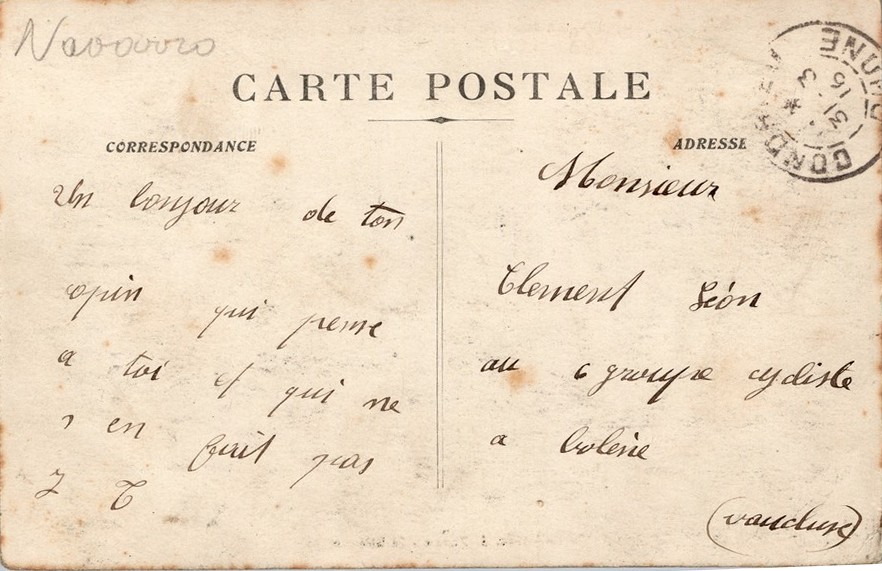 Navarro
CARTE POSTALE
CORRESPONDANCE
ADRESSE
CONDRIEU RHONE
31 3
16
Un bonjour de ton
opin qui pense
a toi et qui ne
s en fait pas
Monsieur
Clement Léon
au 6 groupe cycliste
a bolène
(vaucluse)